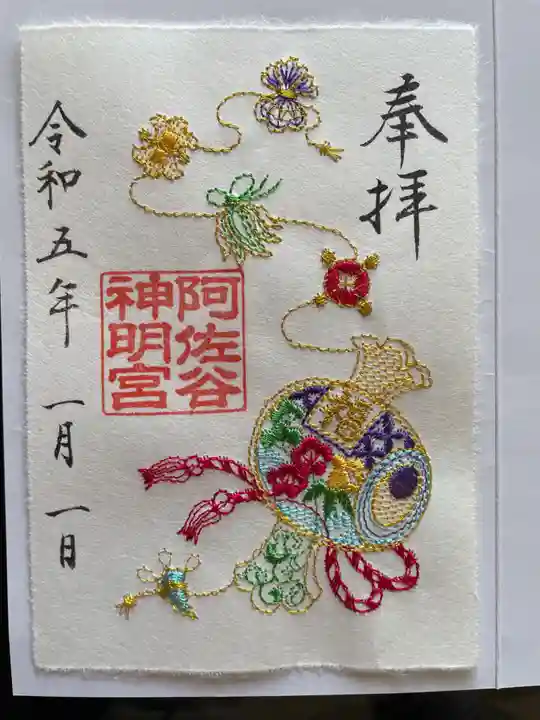 奉拝
阿佐谷
神明宮
令和五年 一月 一日